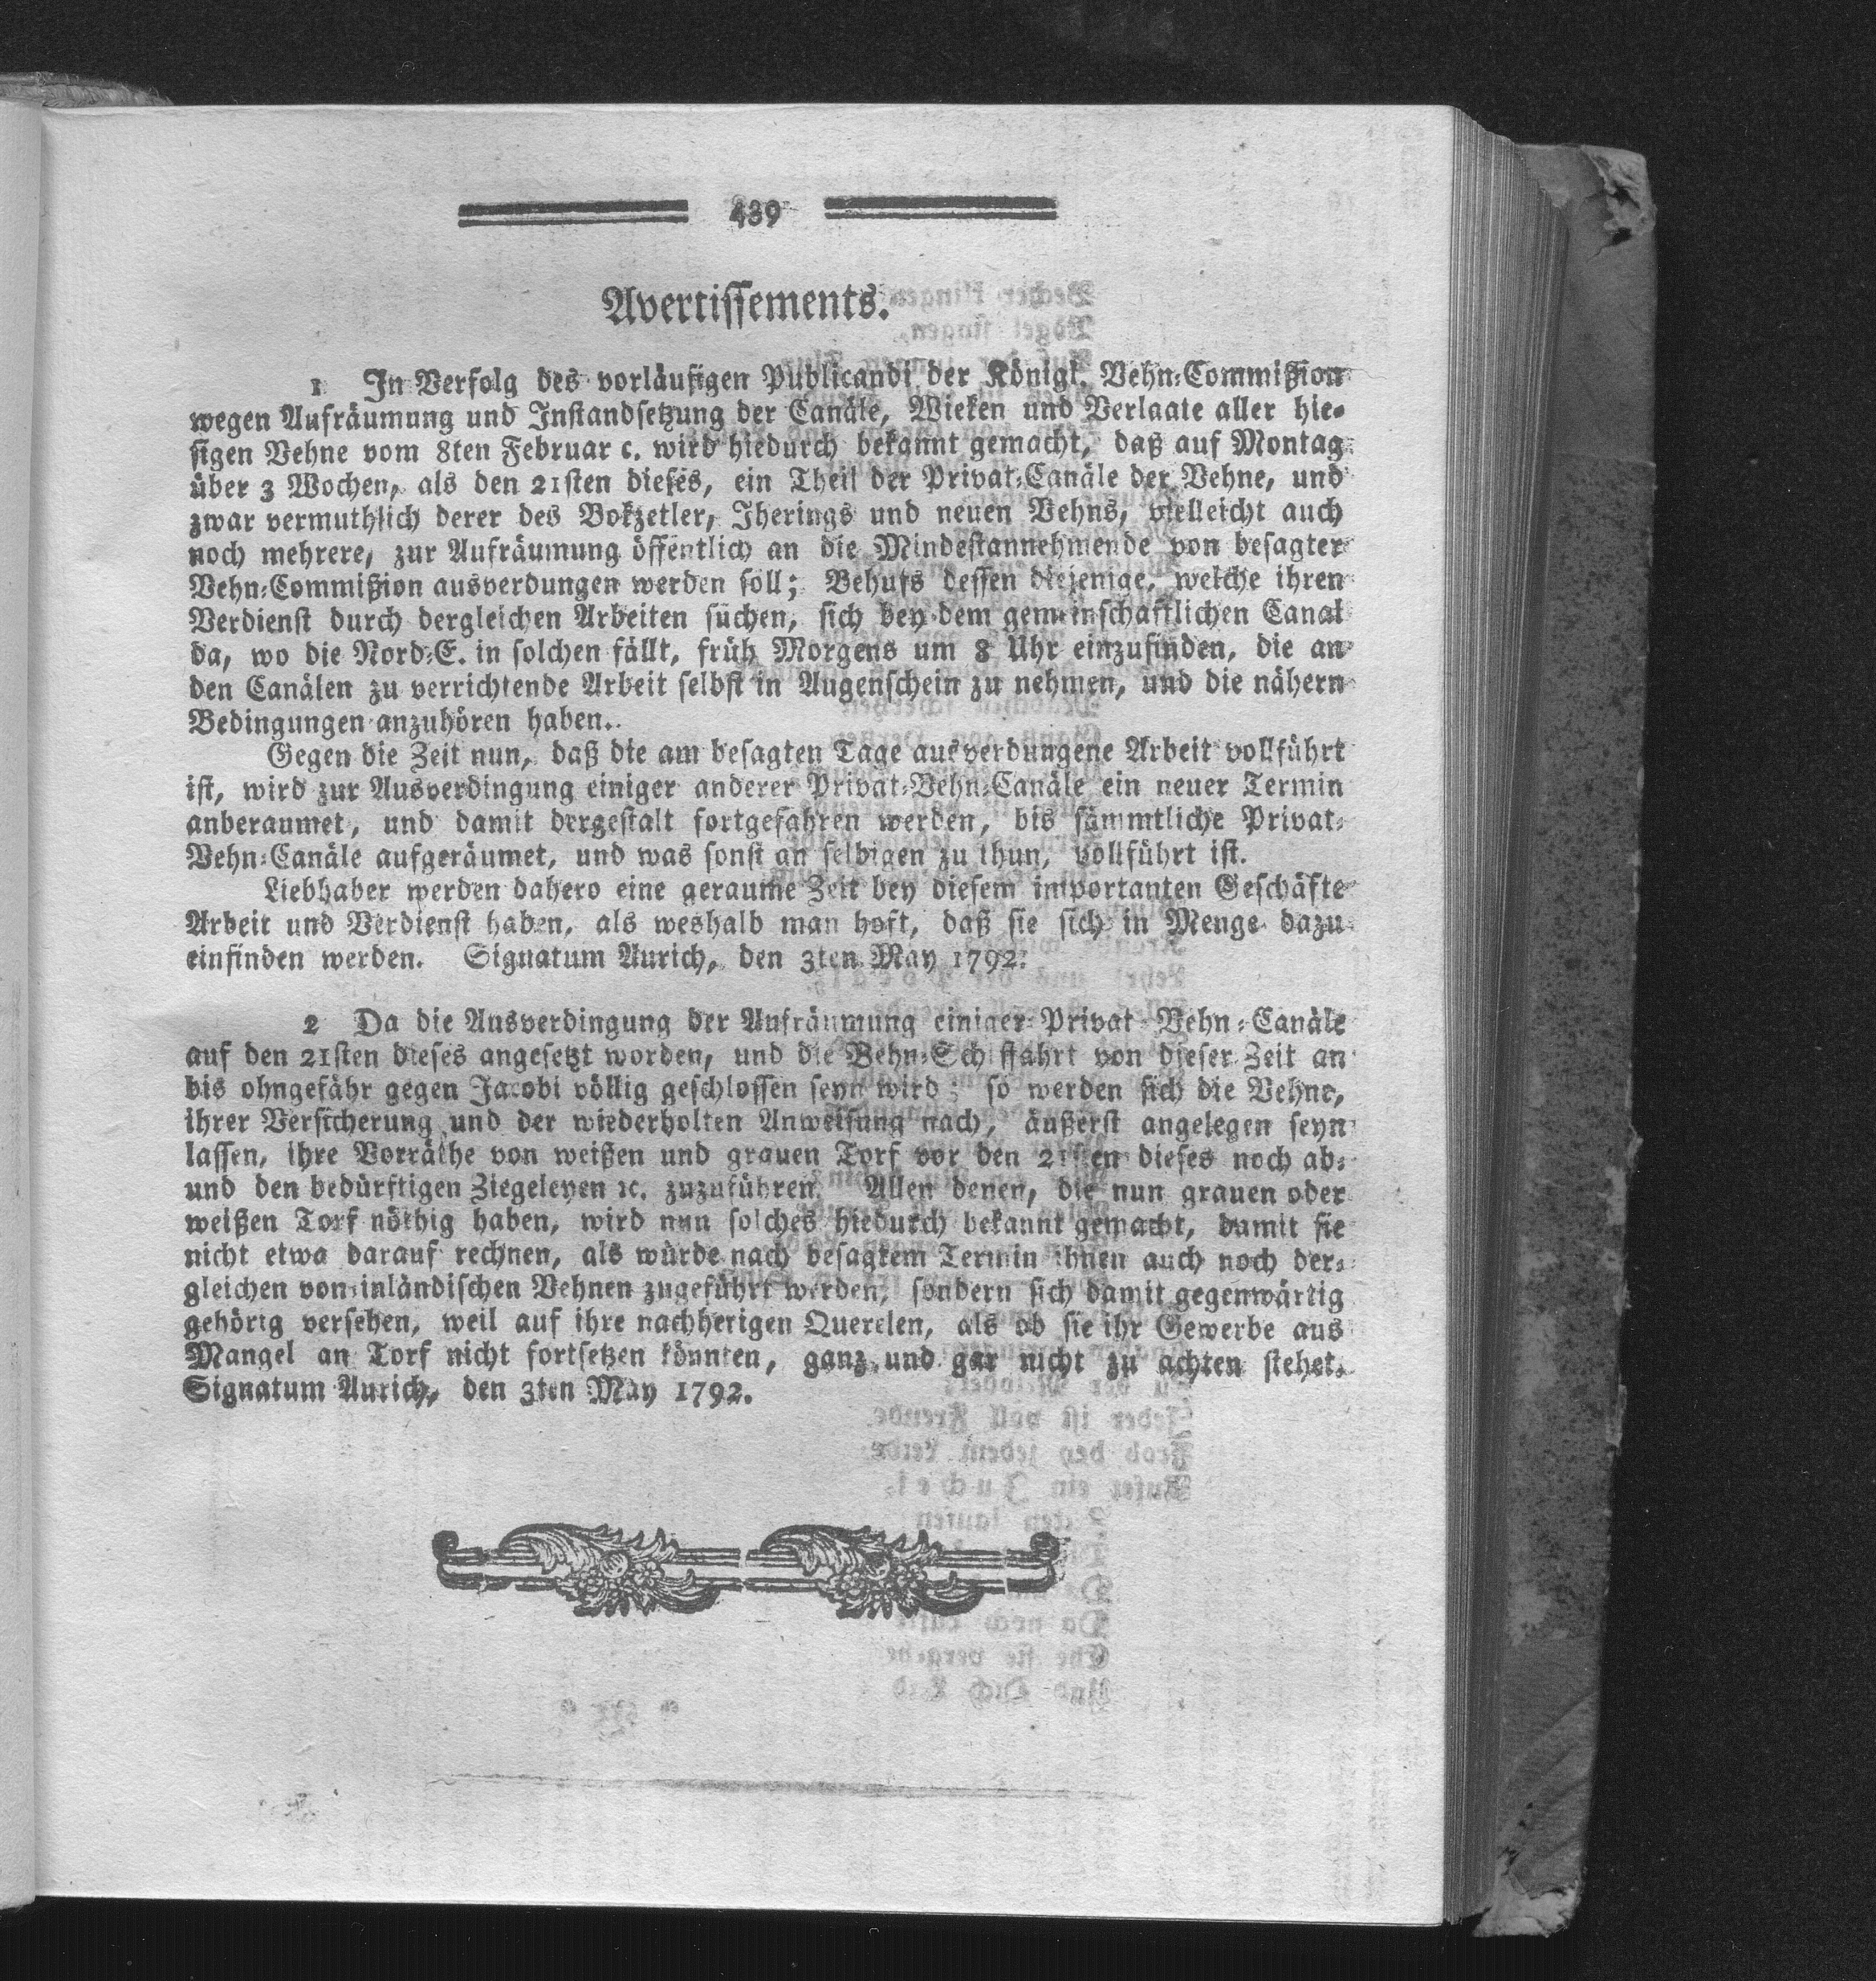 439
Avertissements.
1 In Verfolg des vorläufigen Publicandi der Königl. Vehn-Commißion
wegen Aufräumung und Instandsetzung der Canäle, Wieken und Verlaate aller hie-
sigen Vehne vom 8ten Februar c. wird hiedurch bekannt gemacht, daß auf Montag
über 3 Wochen, als den 21sten dieses, ein Theil der Privat-Canäle der Vehne, und
zwar vermuthlich derer des Bokzetler, Iherings und neuen Vehns, vielleicht auch
noch mehrere, zur Aufräumung öffentlich an die Mindestannehmende von besagter
Vehn-Commißion ausverdungen werden soll; Behufs dessen diejenige, welche ihren
Verdienst durch dergleichen Arbeiten suchen, sich bey dem gemeinschaftlichen Canal
da, wo die Nord-E. in solchen fällt, früh Morgens um 8 Uhr einzufinden, die an
den Canälen zu verrichtende Arbeit selbst in Augenschein zu nehmen, und die nähern
Bedingungen anzuhören haben.
Gegen die Zeit nun, daß die am besagten Tage ausverdungene Arbeit vollführt
ist, wird zur Ausverdingung einiger anderer Privat-Vehn-Canäle ein neuer Termin
anberaumet, und damit dergestalt fortgefahren werden, bis sämmtliche Privat-
Vehn-Canäle aufgeräumet, und was sonst an selbigen zu thun, vollführt ist.
Liebhaber werden dahero eine geraume Zeit bey diesem importanten Geschäfte
Arbeit und Verdienst haben, als weshalb man hoft, daß sie sich in Menge dazu
einfinden werden. Signatum Aurich, den 3ten May 1792.
2 Da die Ausverdingung der Aufräumung einiger Privat-Vehn-Canäle
auf den 21sten dieses angesetzt worden, und die Vehn-Schiffahrt von dieser Zeit an
bis ohngefähr gegen Jacobi völlig geschlossen seyn wird; so werden sich die Vehne,
ihrer Versicherung und der wiederholten Anweisung nach, äußerst angelegen seyn
lassen, ihre Vorräthe von weißen und grauen Torf vor den 21sten dieses noch ab-
und den bedürftigen Ziegeleyen ꝛc. zuzuführen. Allen denen, die nun grauen oder
weißen Torf nöthig haben, wird nun solches hiedurch bekannt gemacht, damit sie
nicht etwa darauf rechnen, als würde nach besagtem Termin ihnen auch noch der-
gleichen von inländischen Vehnen zugeführt werden, sondern sich damit gegenwärtig
gehörig versehen, weil auf ihre nachherigen Querelen, als ob sie ihr Gewerbe aus
Mangel an Torf nicht fortsetzen könnten, ganz und gar nicht zu achten stehet.
Signatum Aurich, den 3ten May 1792.